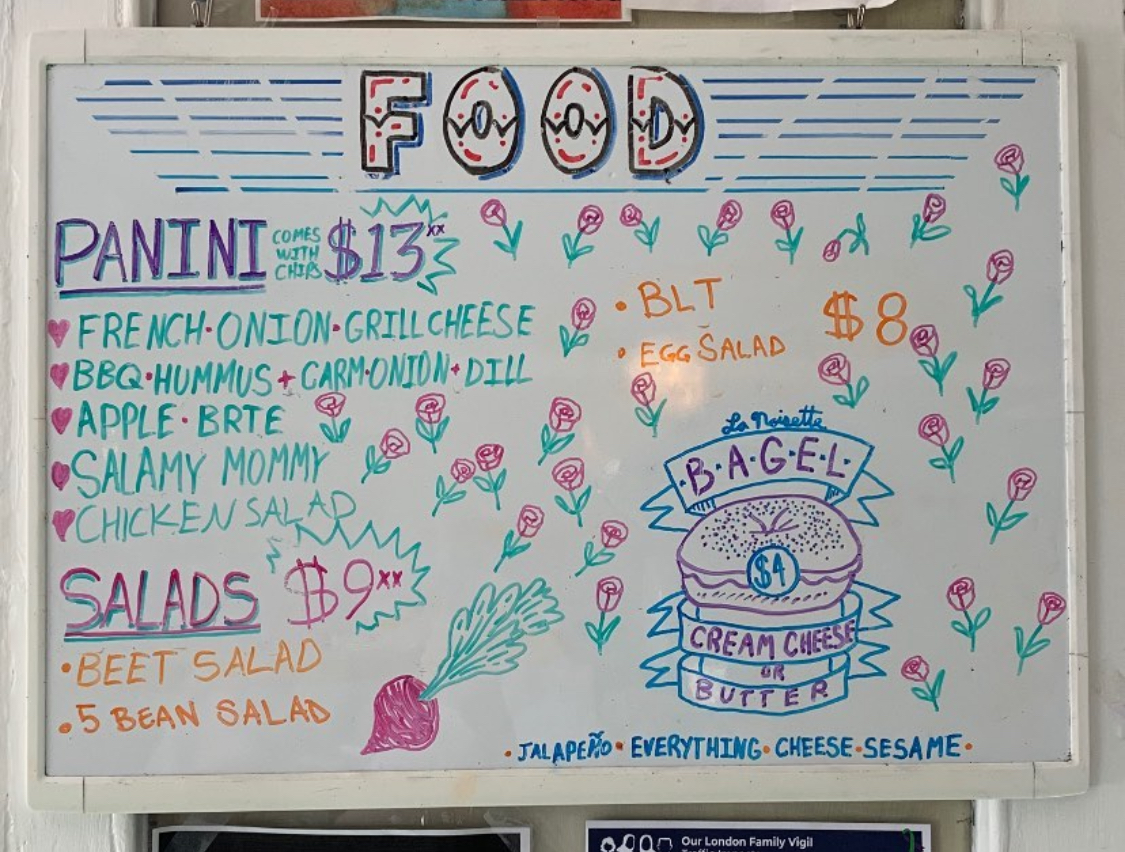 FOOD
PANINI COMES WITH CHIPS $13xx
FRENCH·ONION·GRILL CHEESE
BBQ·HUMMUS + CARM·ONION·DILL
APPLE·BRTE
SALAMY MOMMY
CHICKEN SALAD
SALADS $9xx
·BEET SALAD
·5 BEAN SALAD
·BLT $8
·EGG SALAD
La Noisette
·B·A·G·E·L·
$4
CREAM CHEESE
OR
BUTTER
·JALAPEÑO·EVERYTHING·CHEESE·SESAME·
Our London Family Vigil